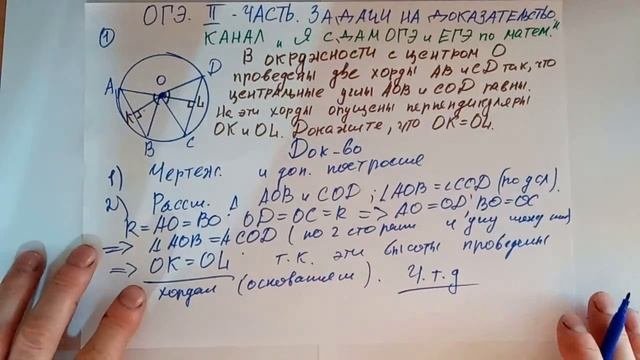 ОГЭ. II - ЧАСТЬ. ЗАДАЧИ НА ДОКАЗАТЕЛЬСТВО
КАНАЛ „Я СДАМ ОГЭ и ЕГЭ по матем."
1
В окружности с центром О
проведены две хорды АВ и СD так, что
центральные углы АОВ и СОD равны.
На эти хорды опущены перпендикуляры
ОК и OL. Докажите, что ОК=OL.
A
O
D
K
L
B
C
Док-во
1) Чертеж. и доп. построение
2) Рассм. Δ АОВ и СОD; ∠AOB=∠COD (по усл).
R=AO=BO; OD=OC=R => AO=OD; BO=OC
=> ΔAOB=ΔCOD (по 2 сторонам и углу между ними)
=> OK=OL. т.к. эти высоты проведены
хордам (основаниям). Ч.т.д